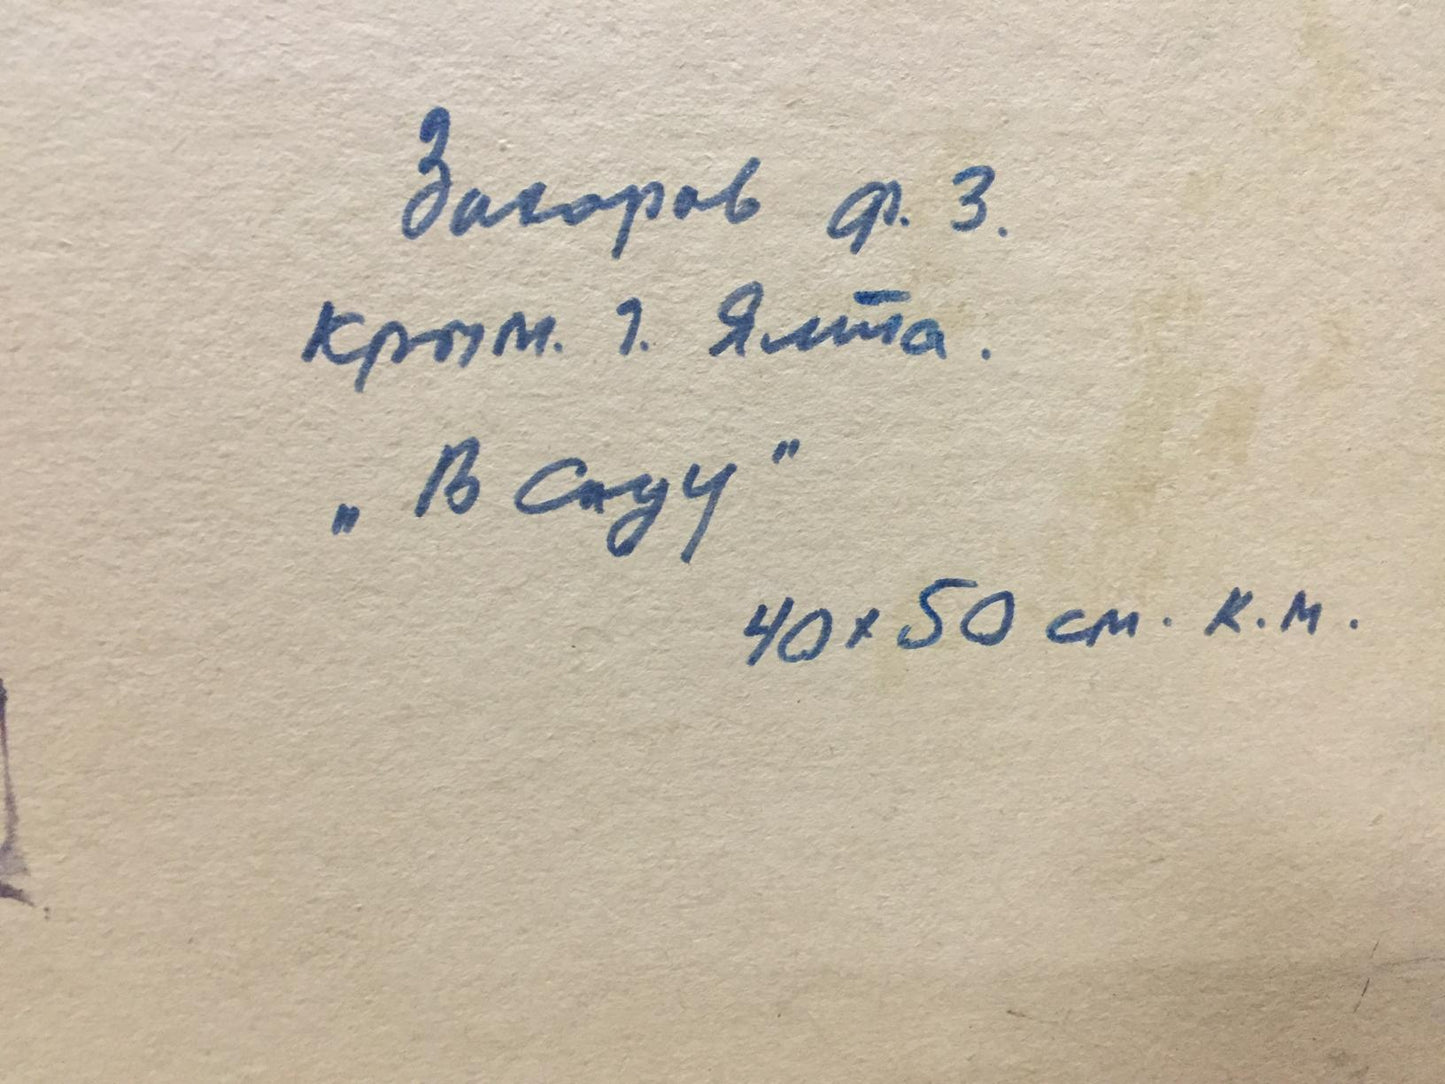 Захаров Ф. З.
Крым. г. Ялта.
„В саду"
40x50 см. к.м.